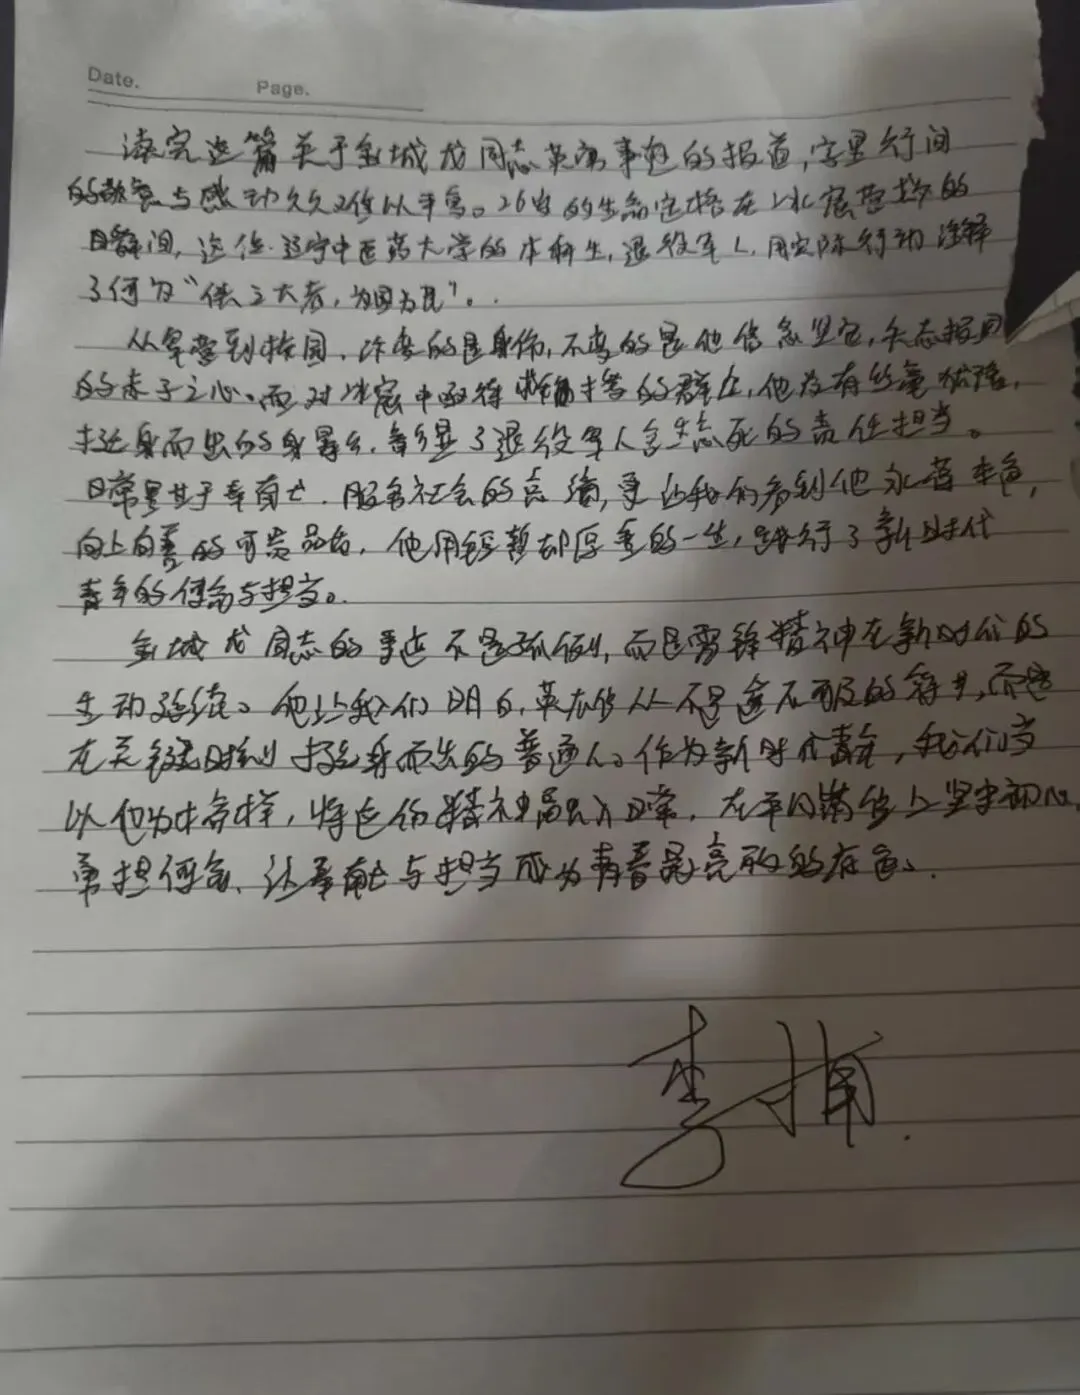 Date.
Page.
读完这篇关于金城龙同志英勇事迹的报道,字里行间
的敬意与感动久久难以平息。26岁的生命定格在冰窟营救的
瞬间,这位辽宁中医药大学的本科生,退役军人,用实际行动诠释
了何为“侠之大者,为国为民”。
从军营到校园,改变的是身份,不变的是他信念坚定,矢志报国
的赤子之心。面对冰窟中亟待救援的群众,他没有丝毫犹豫,
挺身而出的身影,彰显了退役军人舍生忘死的责任担当。
日常里甘于奉献,服务社会的点滴,更让我们看到他永葆本色,
向上向善的可贵品格,他用短暂却厚重的一生,践行了新时代
青年的使命与担当。
金城龙同志的事迹不是孤例,而是雷锋精神在新时代的
生动延续。他让我们明白,英雄从不是遥不可及的符号,而是
在关键时刻挺身而出的普通人。作为新时代青年,我们当
以他为榜样,将这份精神融入日常,在平凡岗位上坚守初心,
勇担使命,让奉献与担当成为青春最亮的底色。
李